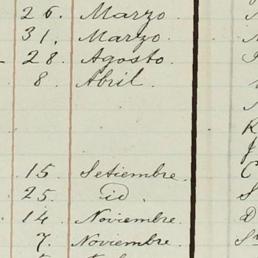 26. Marzo
31. Marzo.
28. Agosto.
8. Abril.
15. Setiembre.
25. id.
14. Noviembre.
7. Noviembre.